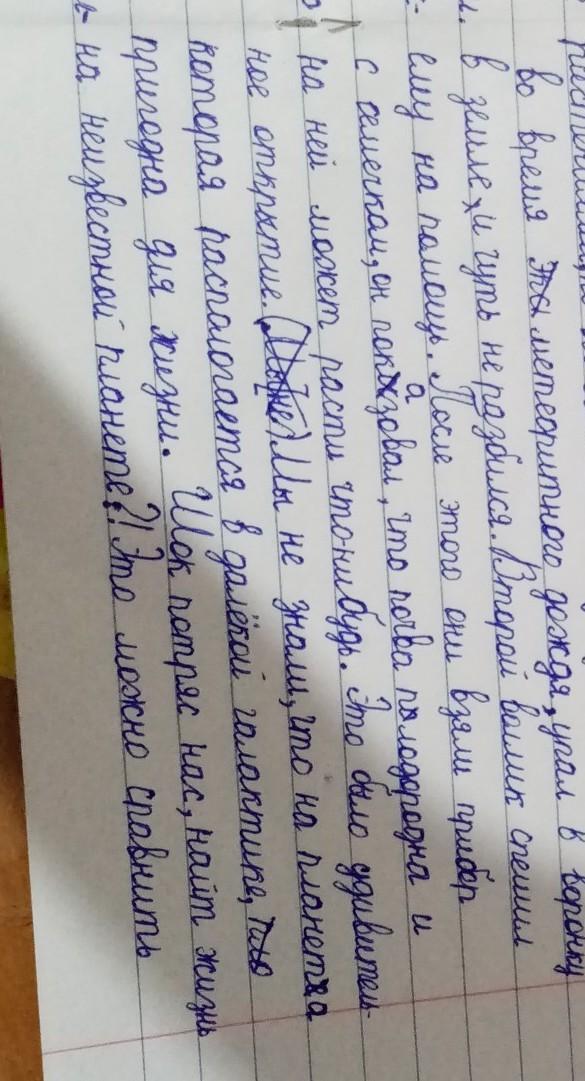 во время метеоритного дождя, упал в воронку
в земле, и чуть не разбился. Второй валик спешил
ему на помощь. После этого они взяли прибор
с семечком, он показовал, что почва полодородна и
на ней может расти что-нибудь. Это было удивитель-
ное открытие. Мы не знали, что на планетка
которая распологается в далёкой галактике,
пригодна для жизни. Шок потряс нас, найт жизнь
на неизвестной планете?! Это можно сравнить